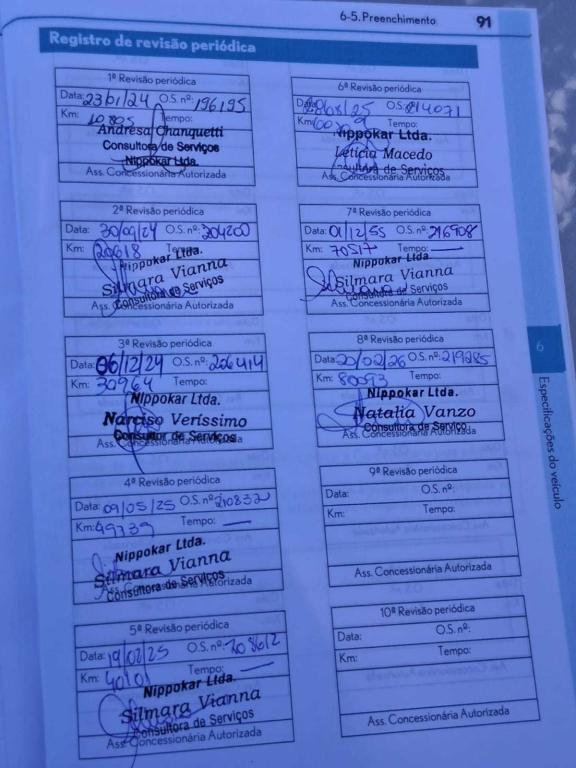 6-5. Preenchimento 91
Registro de revisão periódica
1ª Revisão periódica
Data: 23/01/24 O.S. nº: 196195
Km: 10805 Tempo:
Andresa Chanquetti
Consultora de Serviços
Nippokar Ltda.
Ass. Concessionária Autorizada
2ª Revisão periódica
Data: 30/09/24 O.S. nº: 204200
Km: 20618 Tempo:
Nippokar Ltda.
Silmara Vianna
Consultora de Serviços
Ass. Concessionária Autorizada
3ª Revisão periódica
Data: 06/12/24 O.S. nº: 206414
Km: 30964 Tempo:
Nippokar Ltda.
Narciso Veríssimo
Consultor de Serviços
Ass. Concessionária Autorizada
4ª Revisão periódica
Data: 09/05/25 O.S. nº: 210832
Km: 49739 Tempo: —
Nippokar Ltda.
Silmara Vianna
Consultora de Serviços
Ass. Concessionária Autorizada
5ª Revisão periódica
Data: 19/02/25 O.S. nº: 208612
Km: 40101 Tempo: —
Nippokar Ltda.
Silmara Vianna
Consultora de Serviços
Ass. Concessionária Autorizada
6ª Revisão periódica
Data: O.S: 214071
Km: Tempo:
Nippokar Ltda.
Letícia Macedo
Consultora de Serviços
Ass. Concessionária Autorizada
7ª Revisão periódica
Data: 01/12/55 O.S. nº: 216908
Km: 70517 Tempo: —
Nippokar Ltda.
Silmara Vianna
Consultora de Serviços
Ass. Concessionária Autorizada
8ª Revisão periódica
Data: 20/02/26 O.S. nº: 219285
Km: 80093 Tempo:
Nippokar Ltda.
Natalia Vanzo
Consultora de Serviço
Ass. Concessionária Autorizada
9ª Revisão periódica
Data: O.S. nº:
Km: Tempo:
Ass. Concessionária Autorizada
10ª Revisão periódica
Data: O.S. nº:
Km: Tempo:
Ass. Concessionária Autorizada
6
Especificações do veículo